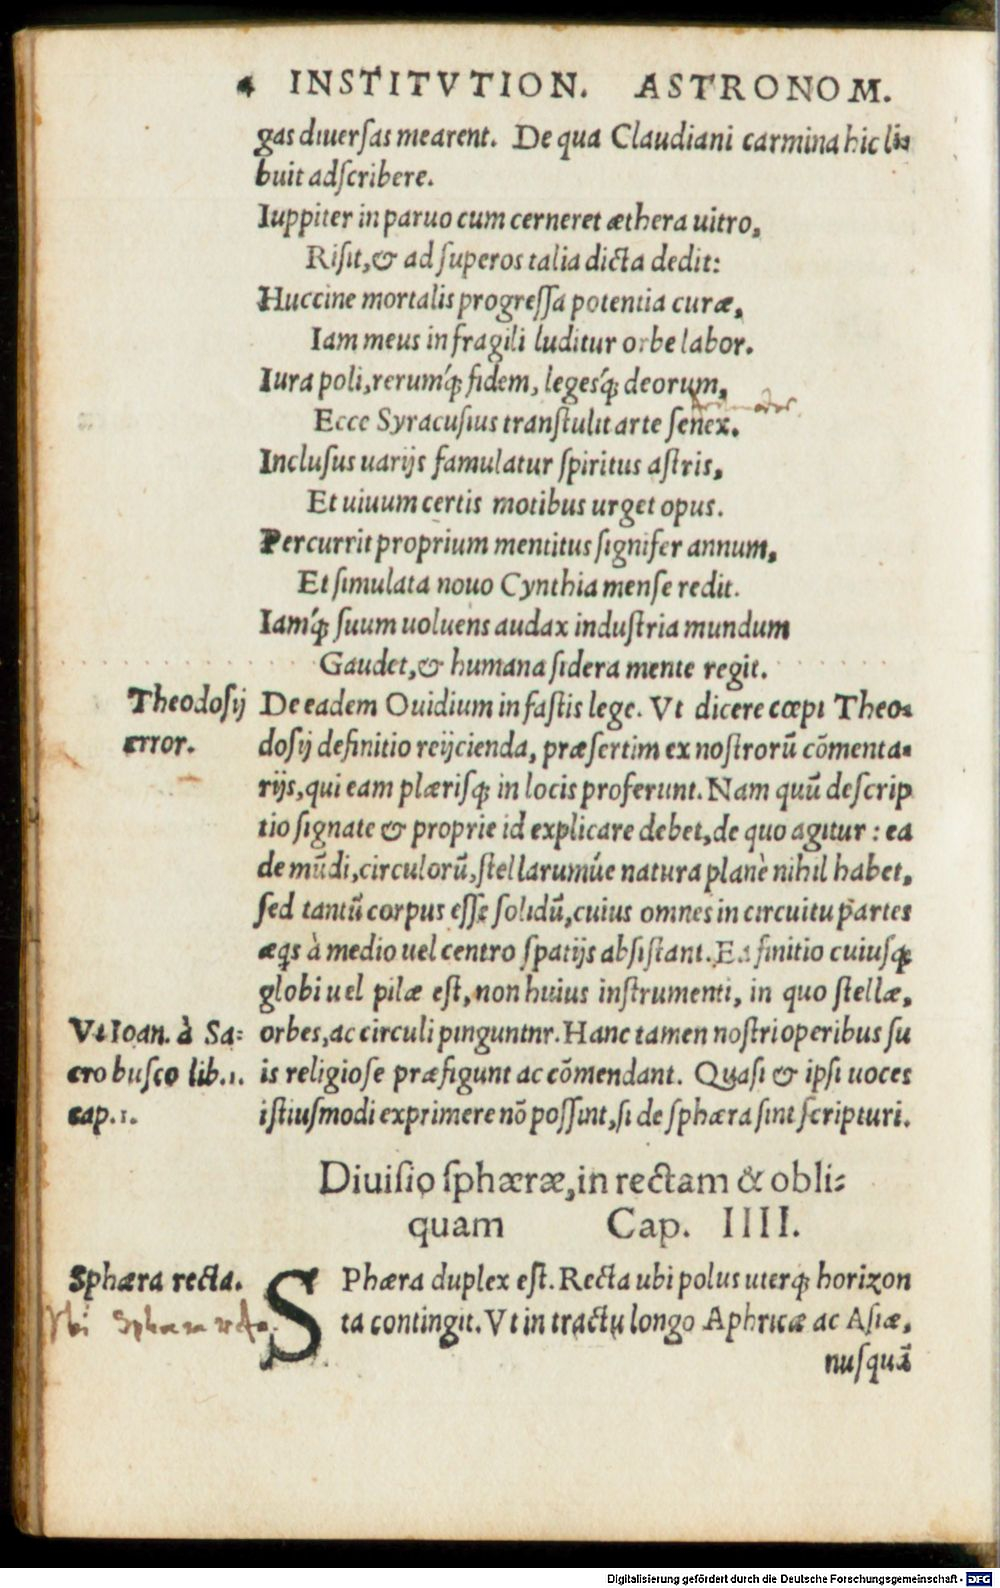 4 INSTITVTION. ASTRONOM.
gas diuersas mearent. De qua Claudiani carmina hic li-
buit adscribere.
Iuppiter in paruo cum cerneret æthera uitro,
Risit, & ad superos talia dicta dedit:
Huccine mortalis progressa potentia curæ,
Iam meus in fragili luditur orbe labor.
Iura poli, rerumq́; fidem, legesq́; deorum,
Ecce Syracusius transtulit arte senex.
Inclusus uarijs famulatur spiritus astris,
Et uiuum certis motibus urget opus.
Percurrit proprium mentitus signifer annum,
Et simulata nouo Cynthia mense redit.
Iamq́; suum uoluens audax industria mundum
Gaudet, & humana sidera mente regit.
Theodosij
error.
De eadem Ouidium in fastis lege. Vt dicere cœpi Theo-
dosij definitio reijcienda, præsertim ex nostrorũ cõmenta-
rijs, qui eam plærisq; in locis proferunt. Nam quũ descrip
tio signate & proprie id explicare debet, de quo agitur : ea
de mũdi, circulorũ, stellarumúe natura planè nihil habet,
sed tantũ corpus esse solidũ, cuius omnes in circuitu partes
æqs à medio uel centro spatijs absistant. Ea finitio cuiusq;
globi uel pilæ est, non huius instrumenti, in quo stellæ,
Vt Ioan. à Sa-
cro busco lib.1.
cap.1.
orbes, ac circuli pinguntnr. Hanc tamen nostri operibus su
is religiose præfigunt ac cõmendant. Quasi & ipsi uoces
istiusmodi exprimere nõ possint, si de sphæra sint scripturi.
Diuisio sphæræ, in rectam & obli-
quam Cap. IIII.
Sphæra recta.
Vbi Sphæra recta.
SPhæra duplex est. Recta ubi polus uterq; horizon
ta contingit. Vt in tractu longo Aphricæ ac Asiæ,
nusquã
Digitalisierung gefördert durch die Deutsche Forschungsgemeinschaft - DFG